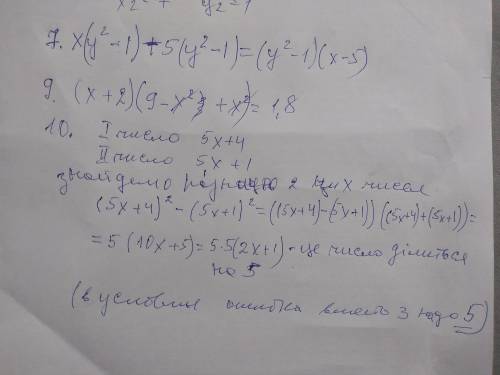 x₂ = y₂ = 1
7. x(y²-1) - 5(y²-1) = (y²-1)(x-5)
9. (x+2)(9-x²) + x² = 1,8
10. I число 5x+4
II число 5x+1
знайдемо різницю 2 цих чисел
(5x+4)² - (5x+1)² = ((5x+4)-(5x+1))((5x+4)+(5x+1)) =
= 5(10x+5) = 5·5(2x+1) - це число ділиться
на 5
(в условие ошибка вместо 3 надо 5)